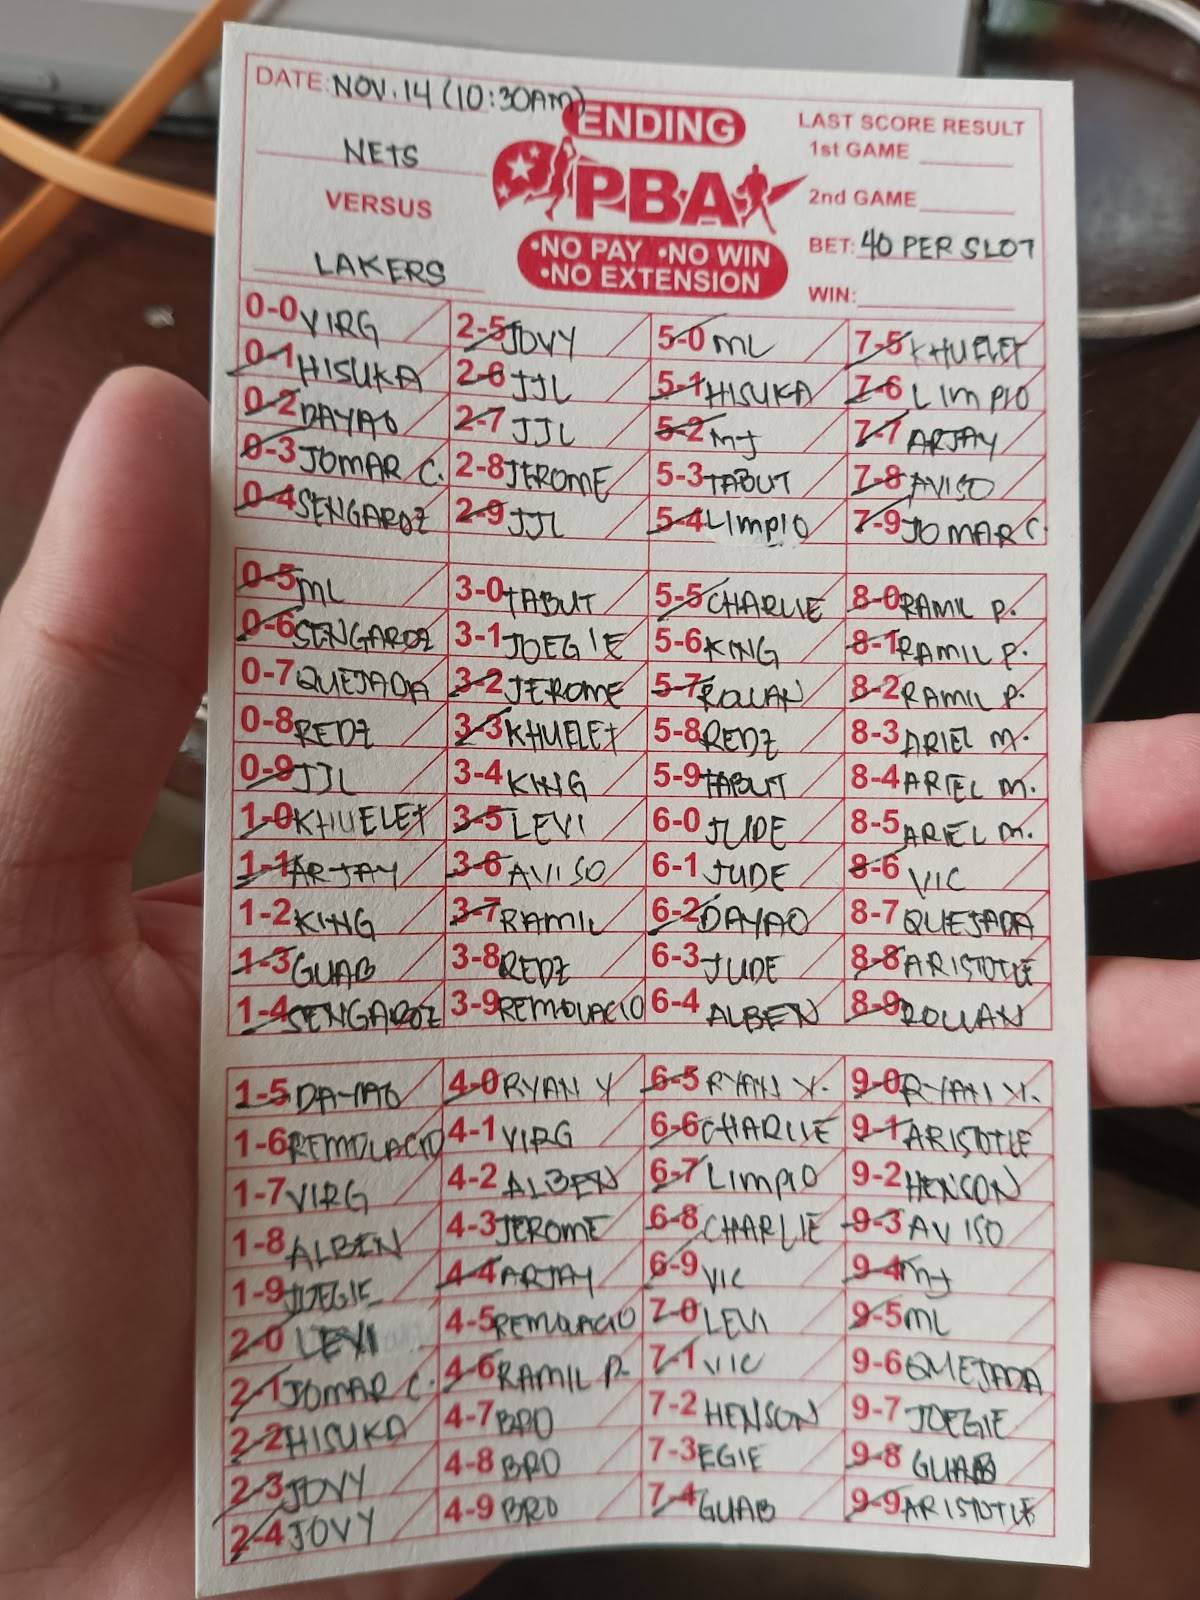 DATE: NOV. 14 (10:30AM)
NETS
VERSUS
LAKERS
ENDING
PBA
•NO PAY •NO WIN
•NO EXTENSION
LAST SCORE RESULT
1st GAME
2nd GAME
BET: 40 PER SLOT
WIN:
0-0 VIRG
0-1 HISUKA
0-2 DAYAO
0-3 JOMAR C.
0-4 SENGAROZ
0-5 ML
0-6 SENGAROZ
0-7 QUEJADA
0-8 REDZ
0-9 JJL
1-0 KHUELET
1-1 ARJAY
1-2 KING
1-3 GUAB
1-4 SENGAROZ
1-5 DAYAO
1-6 REMOLACIO
1-7 VIRG
1-8 ALBEN
1-9 JOEGIE
2-0 LEVI
2-1 JOMAR C.
2-2 HISUKA
2-3 JOVY
2-4 JOVY
2-5 JOVY
2-6 JJL
2-7 JJL
2-8 JEROME
2-9 JJL
3-0 TABUT
3-1 JOEGIE
3-2 JEROME
3-3 KHUELET
3-4 KING
3-5 LEVI
3-6 AVISO
3-7 RAMIL
3-8 REDZ
3-9 REMOLACIO
4-0 RYAN Y
4-1 VIRG
4-2 ALBEN
4-3 JEROME
4-4 ARJAY
4-5 REMOLACIO
4-6 RAMIL P.
4-7 BRO
4-8 BRO
4-9 BRO
5-0 ML
5-1 HISUKA
5-2 MJ
5-3 TABUT
5-4 LIMPIO
5-5 CHARLIE
5-6 KING
5-7 ROLLAN
5-8 REDZ
5-9 TABUT
6-0 JUDE
6-1 JUDE
6-2 DAYAO
6-3 JUDE
6-4 ALBEN
6-5 RYAN Y.
6-6 CHARLIE
6-7 LIMPIO
6-8 CHARLIE
6-9 VIC
7-0 LEVI
7-1 VIC
7-2 HENSON
7-3 EGIE
7-4 GUAB
7-5 KHUELET
7-6 LIMPIO
7-7 ARJAY
7-8 AVISO
7-9 JOMAR C.
8-0 RAMIL P.
8-1 RAMIL P.
8-2 RAMIL P.
8-3 ARIEL M.
8-4 ARIEL M.
8-5 ARIEL M.
8-6 VIC
8-7 QUEJADA
8-8 ARISTOTLE
8-9 ROLLAN
9-0 RYAN Y.
9-1 ARISTOTLE
9-2 HENSON
9-3 AVISO
9-4 MJ
9-5 ML
9-6 QUEJADA
9-7 JOEGIE
9-8 GUAB
9-9 ARISTOTLE